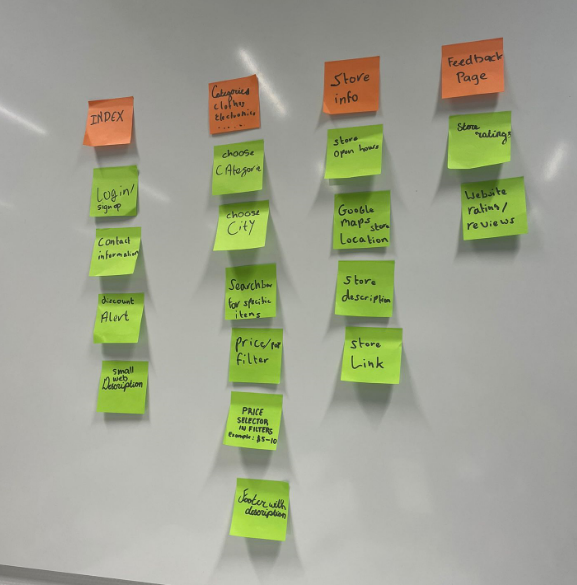 INDEX
Login/
sign up
Contact
information
discount
Alert
small
web
Description
Categories
clothes
Electronics
.....
choose
CAtegorie
choose
City
Searchbar
for specific
items
price/
Filter
PRICE
SELECTOR
IN FILTERS
Example: $5-10
Footer with
description
Store
info
store
open hours
Google
Maps store
Location
Store
description
Store
Link
Feedback
Page
Store
ratings
Website
rating/
reviews